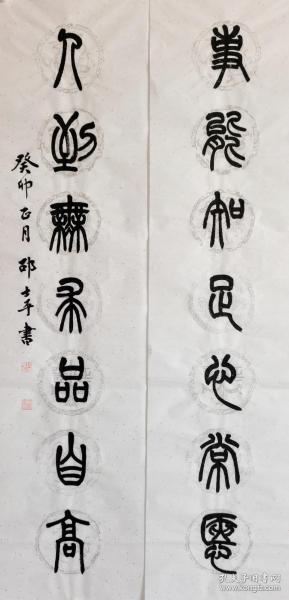 事能知足心常惬
人到无求品自高
癸卯正月 邵士平书
孔夫子旧书网